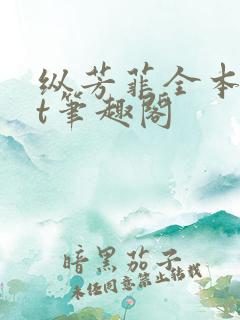 纵芳菲全本
t笔趣阁
暗黑茄子
未经同意禁止转载